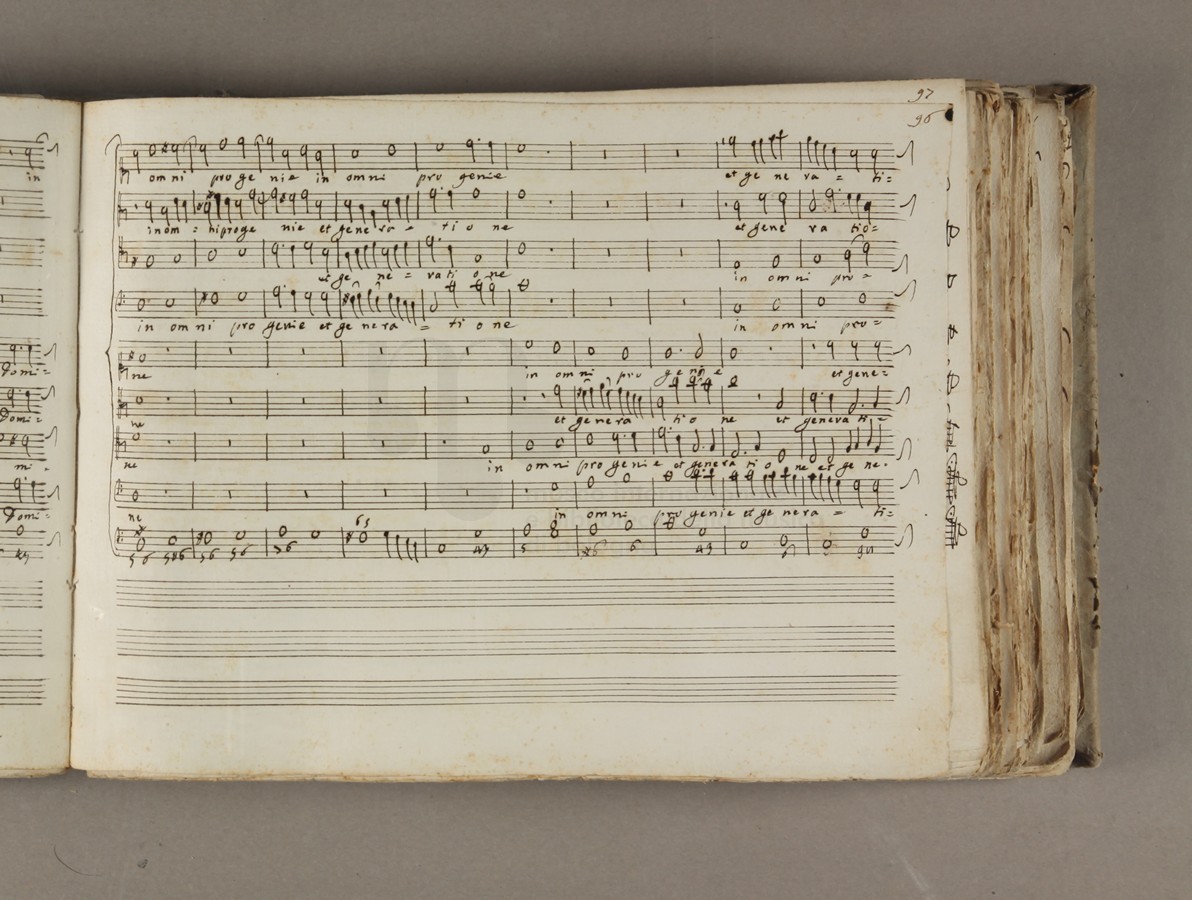 97
96
in omni pro ge nie in omni pro genie et ge ne ra = ti=
in om = niproge nie et gene ra = ti o ne et gene ra tio=
et ge ne = rati o ne in omni pro=
in omni pro genie et ge nera = ti o ne in omni pro=
Domi= ne in omni pro genie et gene=
Domi= ne et genera tio ne et genera ti=
mi = ne in omni pro genie et genera ti o ne et ge ne.
Domi= ne in omni pro genie et ge nera = ti=
65
56 56 56 76 43 5 6 43